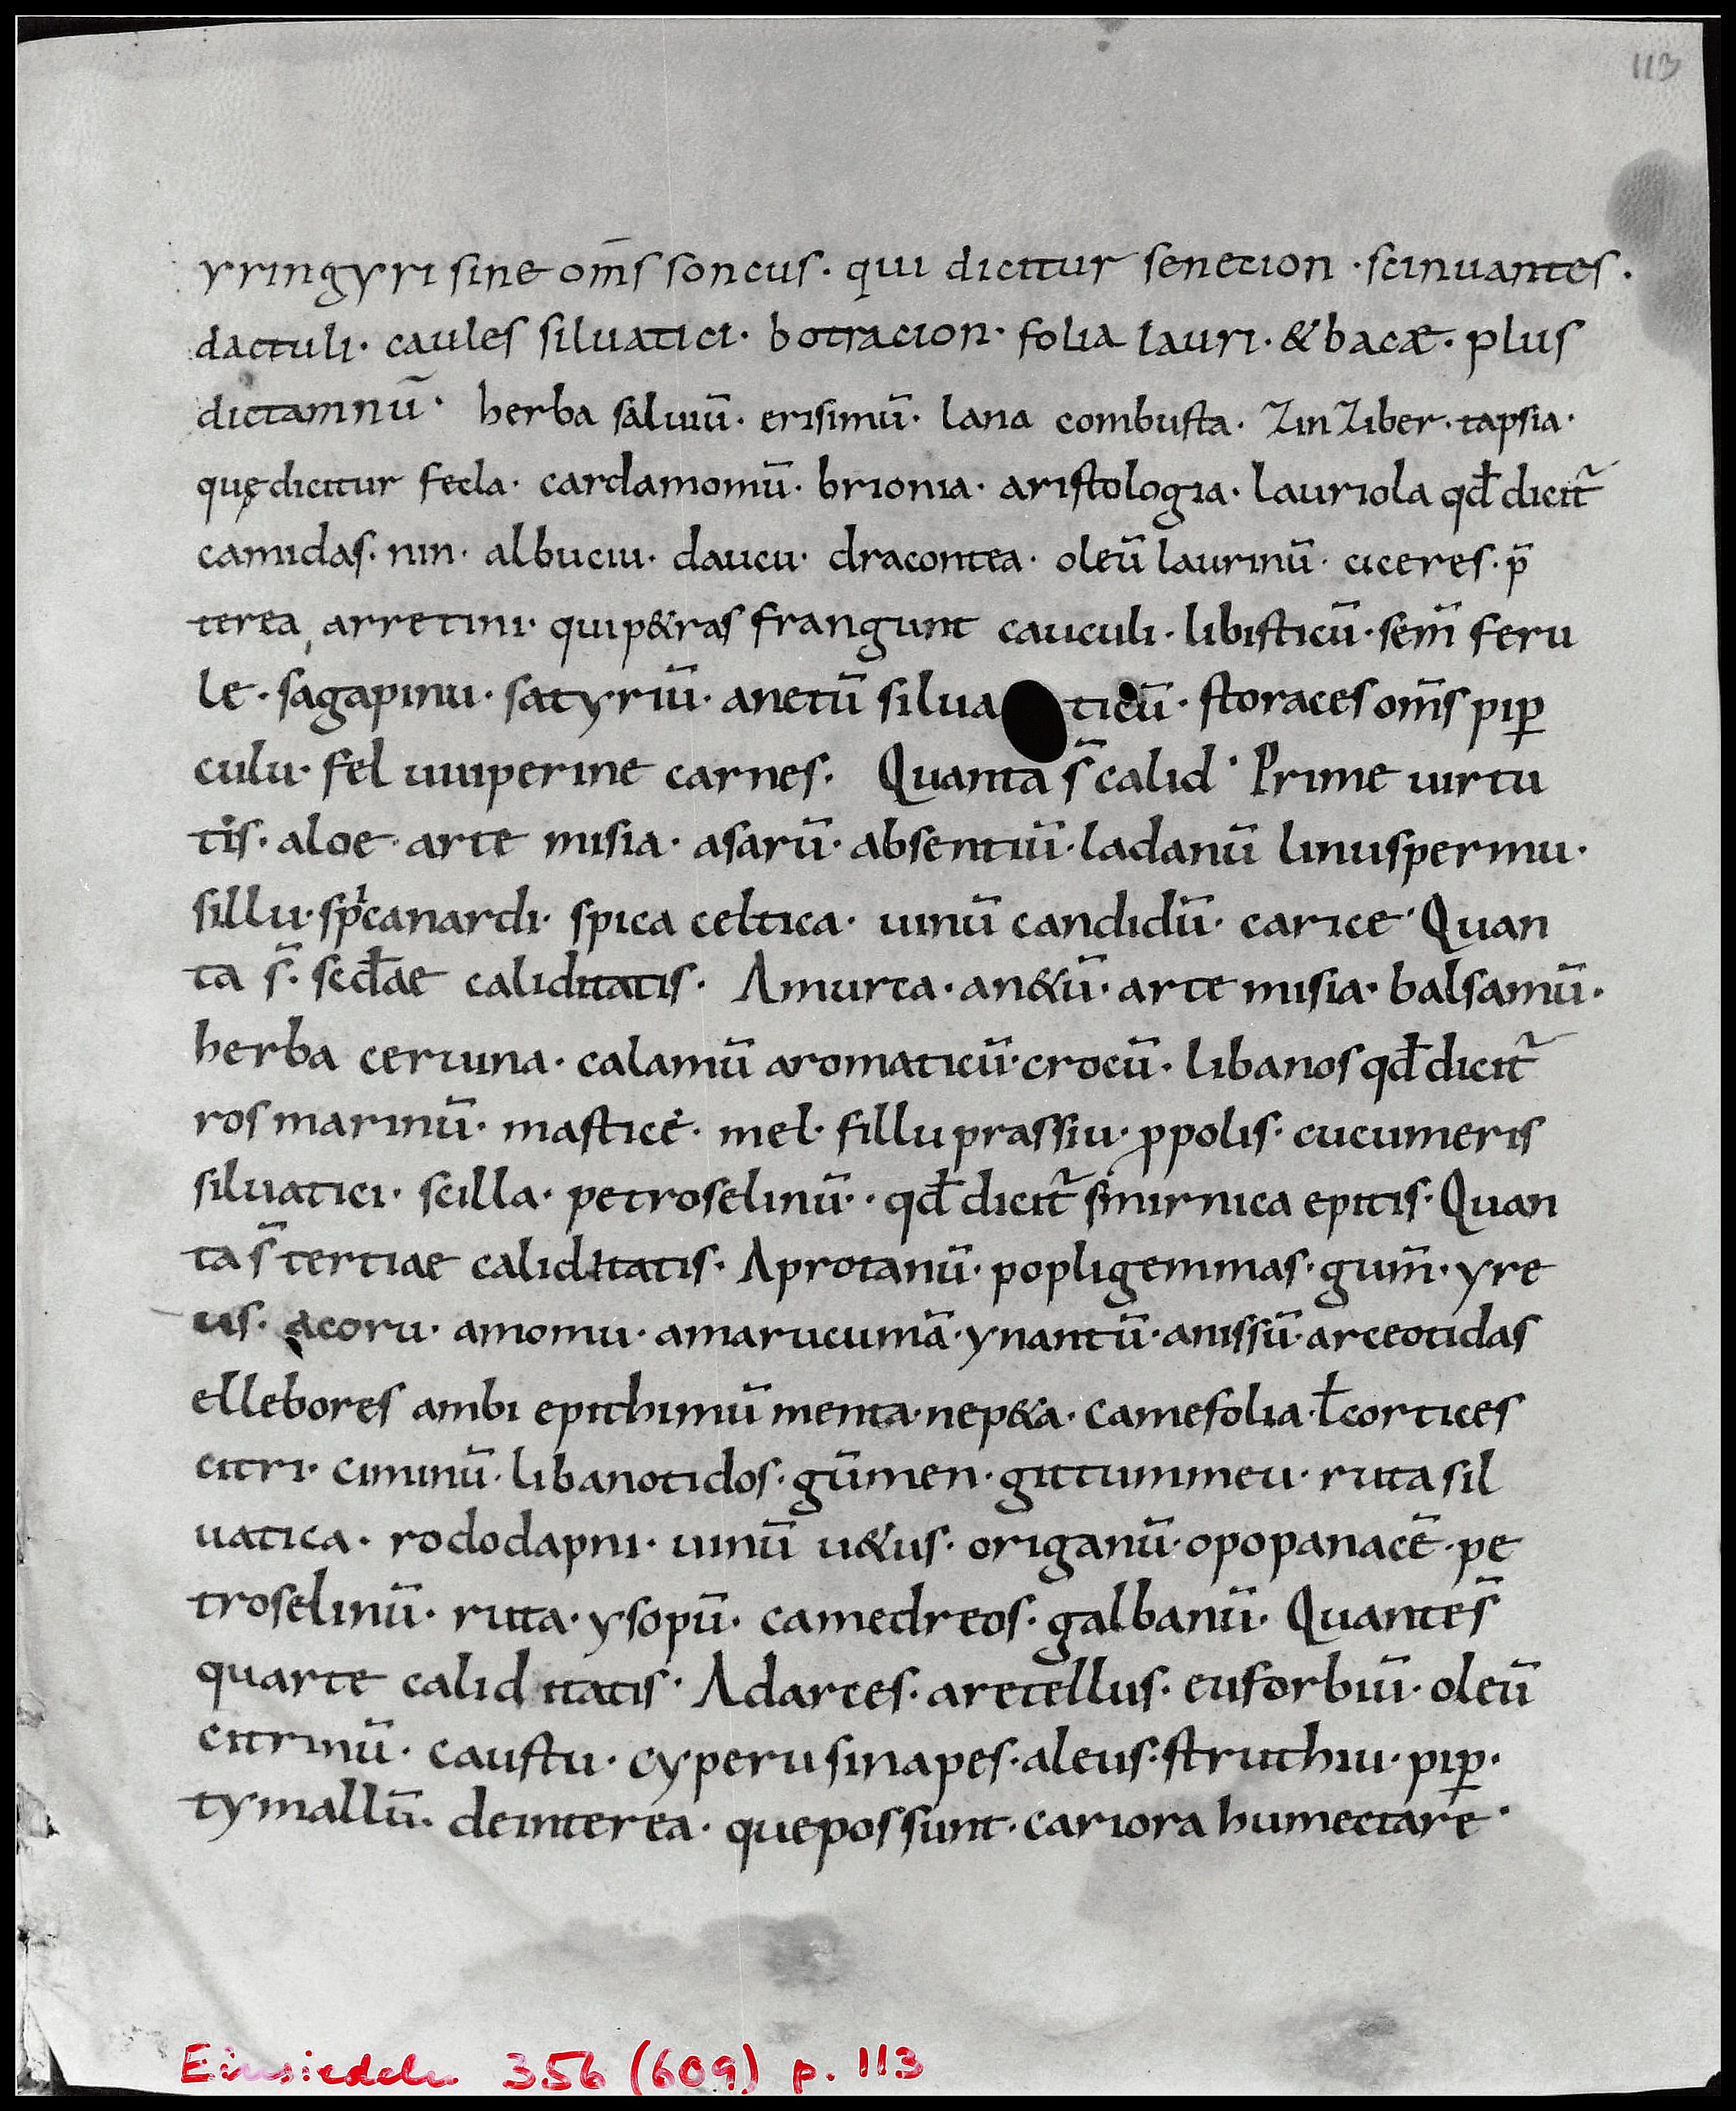 113
yringyri sine om̄s soncus · qui dicitur senecion · scinuantes ·
dactuli · caules siluatici · botracion · folia lauri · & bacæ · plus
dictamnū · herba saluiū · erisimū · lana combusta · zinziber · tapsia ·
quę dicitur fecla · cardamomū · brionia · aristologia · lauriola qđ dicit᷑
camidas · nin · albuciu · daucu · dracontea · oleū laurinū · ciceres · p̄
terea, arretini · qui p&ras frangunt cauculi · libisticū · sem̄ feru
le · sagapinu · satyriū · anetū silua ticū · storaces om̄s pip̱
culu · fel uiuiperine carnes · Quanta s̄ calid · Prime uirtu
tis · aloe · arte misia · asarū · absentiū · ladanū linuspermu ·
sillu · spicanardi · spica celtica · uinū candidū · carice · Quan
ta s̄ · scđae caliditatis · Amurca · an&ū · arte misia · balsamū ·
herba ceruina · calamū aromaticū · crocū · libanos qđ dicit᷑
ros marinū · mastice · mel · fillu prassiu · ꝓpolis · cucumeris
siluatici · scilla · petroselinū · · qđ dicit᷑ smirnica epitis · Quan
ta s̄ tertiae caliditatis · Aprotanū · popligemmas · gum̄ · yre
us · acoru · amomu · amarucumā · ynantū · anissū · arceotidas
ellebores ambi epithimū menta · nep&a · camesolia · ł cortices
citri · ciminū · libanotidos · gūmen · gittummeu · ruta sil
uatica · rododapni · uinū u&us · origanū · opopanacē · pe
troselinū · ruta · ysopū · camedreos · galbanū · Quante s̄
quarte caliditatis · Adarces · arecellus · euforbiū · oleū
citrinū · caustu · cyperu sinapes · aleus · struthiu · pip̱ ·
tymallū · deinterea · que possunt · cariora humectare ·
Einsiedeln 356 (609) p. 113